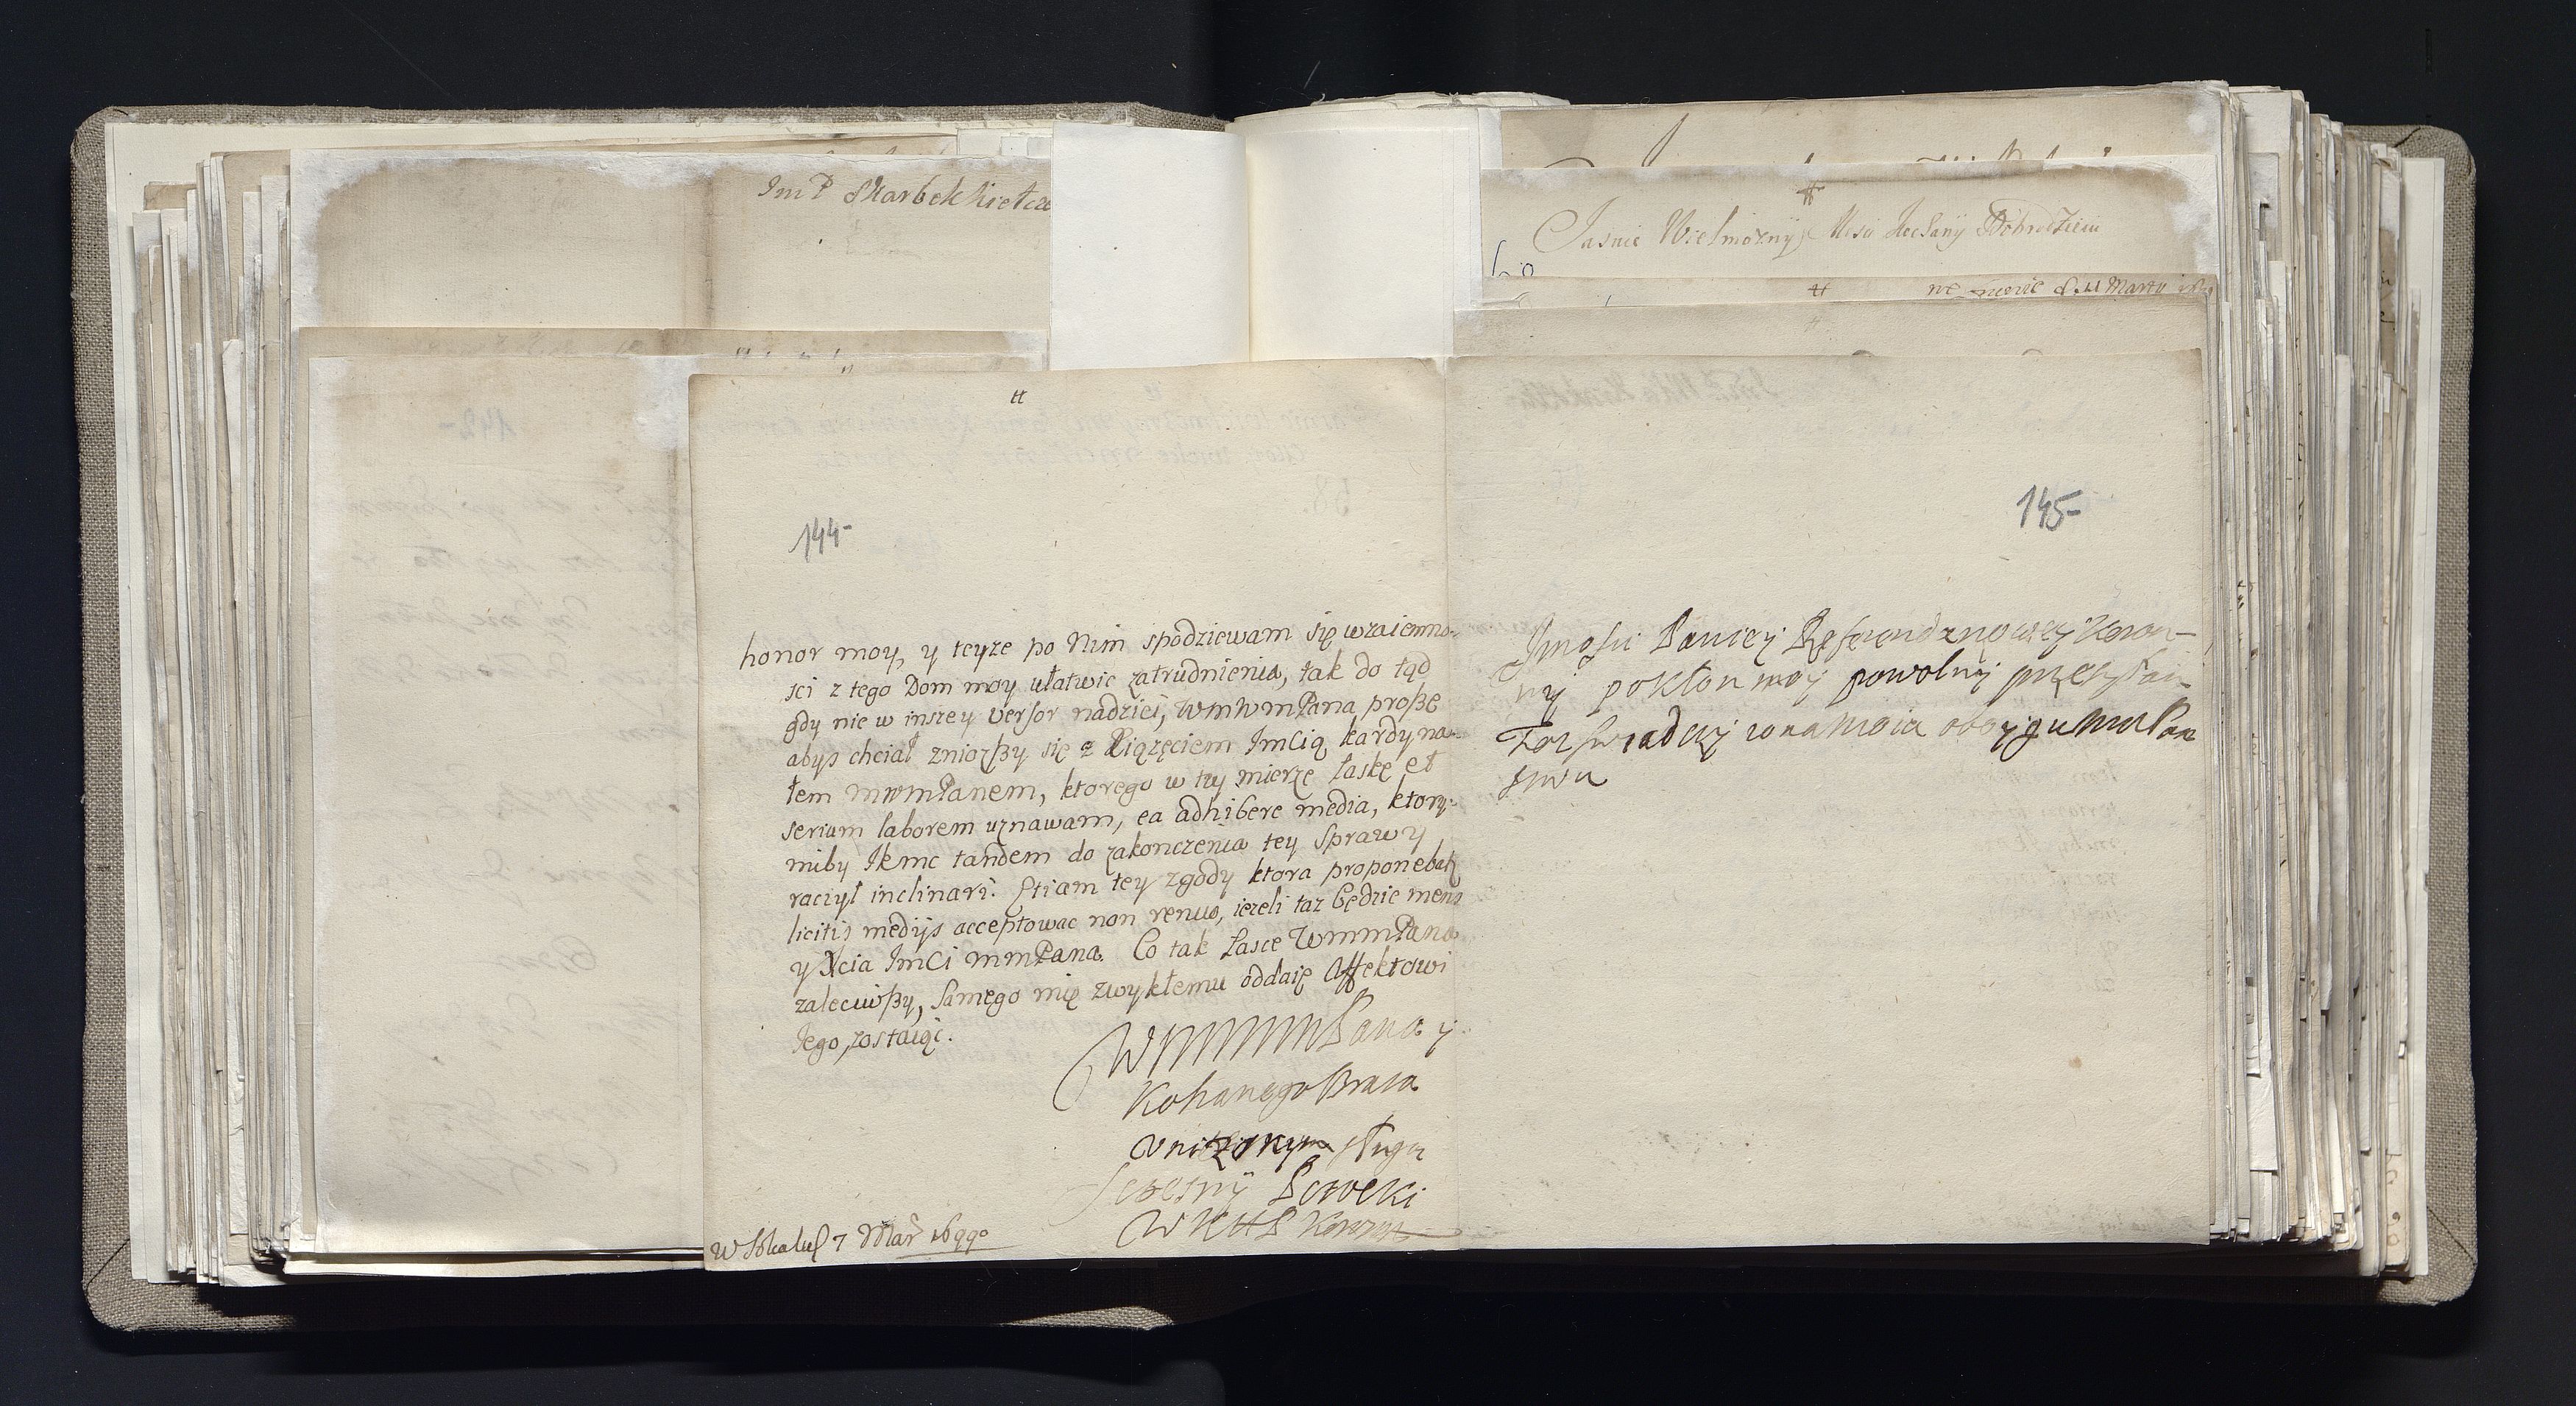 Im P Skarbek Kiełcze
144-
honor moy, y teyże po Nim spodziewam się wzaiemno-
sci z tego Dom moy ułatwic zatrudnienia, tak do tąd
gdy nie w inszey versor nadziei, WmWmPana proßę
abys chciał zniozßy się z Xiązęciem ImCią kardyna-
łem mwmPanem, ktorego w tey mierze łaskę et
serium laborem uznawam, ea adhibere media, ktory-
miby Ikmc tandem do zakonczenia tey Sprawy
raczył inclinari. Etiam tey zgody ktora proponebatz
licitis medijs acceptowac non renuo, iezeli taz będzie mens
y Xcia ImCi mmPana. Co tak Łasce WmmPana
zaleciwßy, Samego mię zwykłemu oddaię Affektowi
Iego, zostaiąc.
WmmmPana y
Kohanego Brata
Vnizonym sługą
Sczesny Potocki
W K H P Koronny
W Sokalu 7 Mar 1699
Jasnie Wielmozny Msci Dobrodzieiu
145-
Imosci Paniey Referendarzowey Koron-
ny pokłon moy powolny przesyłam
Toz swiadczy zona moia oboygu
stwu